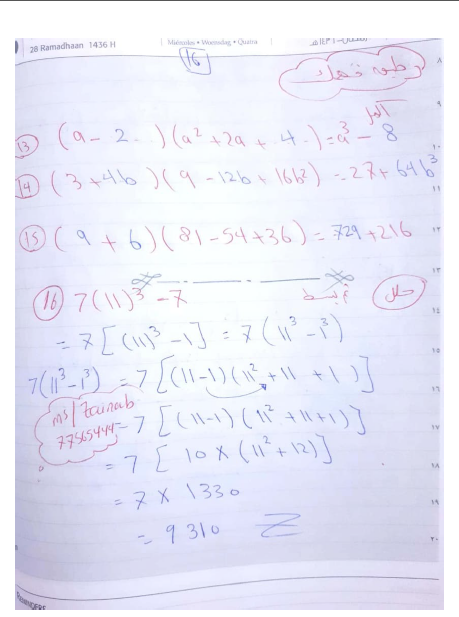 28 Ramadhaan 1436 H Miércoles • Woensdag • Quarta
16
الحل
13 (a - 2 ) (a² + 2a + 4 ) = a³ - 8
14 (3 + 4b ) (9 - 12b + 16b²) = 27 + 64b³
15 (9 + 6) (81 - 54 + 36) = 729 + 216
16 7(11)³ - 7 حلل
= 7 [(11)³ - 1] = 7 (11³ - 1³)
7(11³ - 1³) = 7 [(11-1)(11² + 11 + 1)]
ms/Zainab
77565444
= 7 [(11-1)(11² + 11 + 1)]
= 7 [10 × (11² + 12)]
= 7 × 1330
= 9310